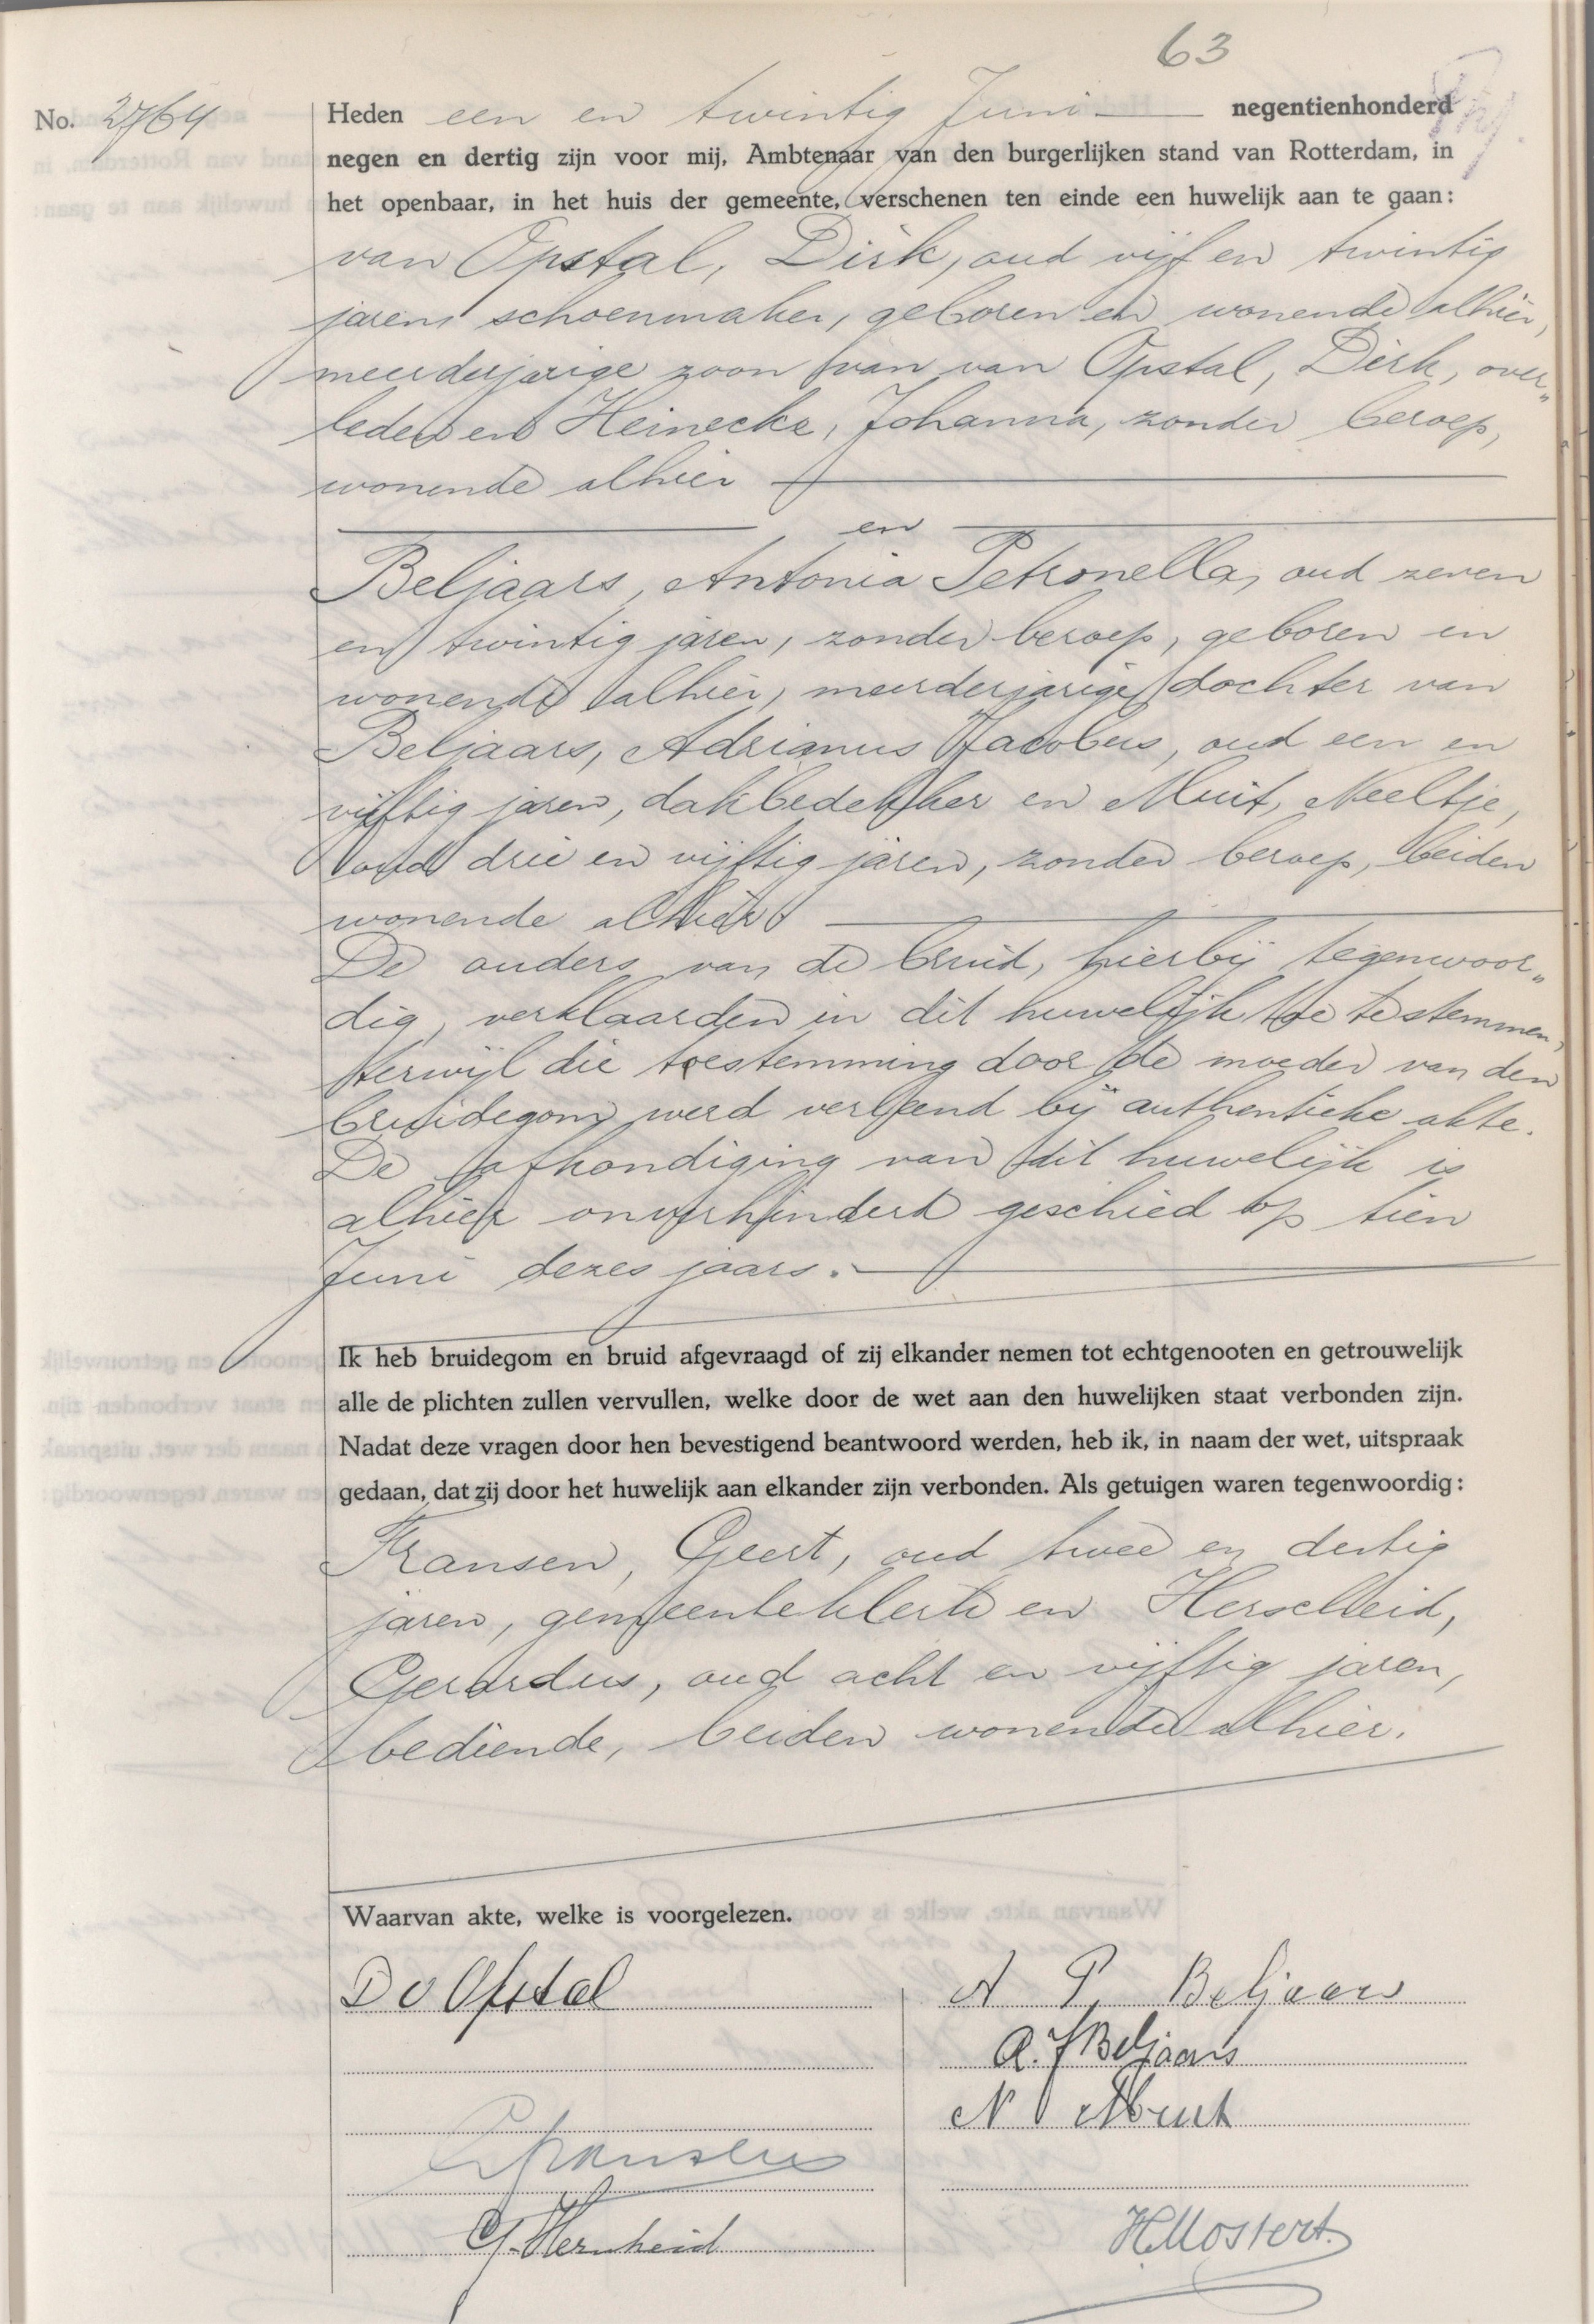 63
No. 2764
Heden een en twintig Juni negentienhonderd
negen en dertig zijn voor mij, Ambtenaar van den burgerlijken stand van Rotterdam, in
het openbaar, in het huis der gemeente, verschenen ten einde een huwelijk aan te gaan:
van Opstal, Dirk, oud vijf en twintig
jaren, schoenmaker, geboren en wonende alhier,
meerderjarige zoon van van Opstal, Dirk, over„
leden en Heinecke, Johanna, zonder beroep,
wonende alhier
en
Beljaars, Antonia Petronella, oud zeven
en twintig jaren, zonder beroep, geboren en
wonende alhier, meerderjarige dochter van
Beljaars, Adrianus Jacobus, oud een en
vijftig jaren, dakbedekker en Muit, Neeltje,
oud drie en vijftig jaren, zonder beroep, beiden
wonende alhier
De ouders van de bruid, hierbij tegenwoor„
dig, verklaarden in dit huwelijk toe te stemmen,
terwijl die toestemming door de moeder van den
bruidegom werd verleend bij authentieke akte.
De afkondiging van dit huwelijk is
alhier onverhinderd geschied op tien
Juni dezes jaars.
Ik heb bruidegom en bruid afgevraagd of zij elkander nemen tot echtgenooten en getrouwelijk
alle de plichten zullen vervullen, welke door de wet aan den huwelijken staat verbonden zijn.
Nadat deze vragen door hen bevestigend beantwoord werden, heb ik, in naam der wet, uitspraak
gedaan, dat zij door het huwelijk aan elkander zijn verbonden. Als getuigen waren tegenwoordig:
Fransen, Geert, oud twee en dertig
jaren, gemeenteklerk en Herscheid,
Gerardus, oud acht en vijftig jaren,
bediende, beiden wonende alhier.
Waarvan akte, welke is voorgelezen.
D v Opstal
A P Beljaars
A. J Beljaars
N Muit
G Fransen
G. Herscheid
H Mostert.